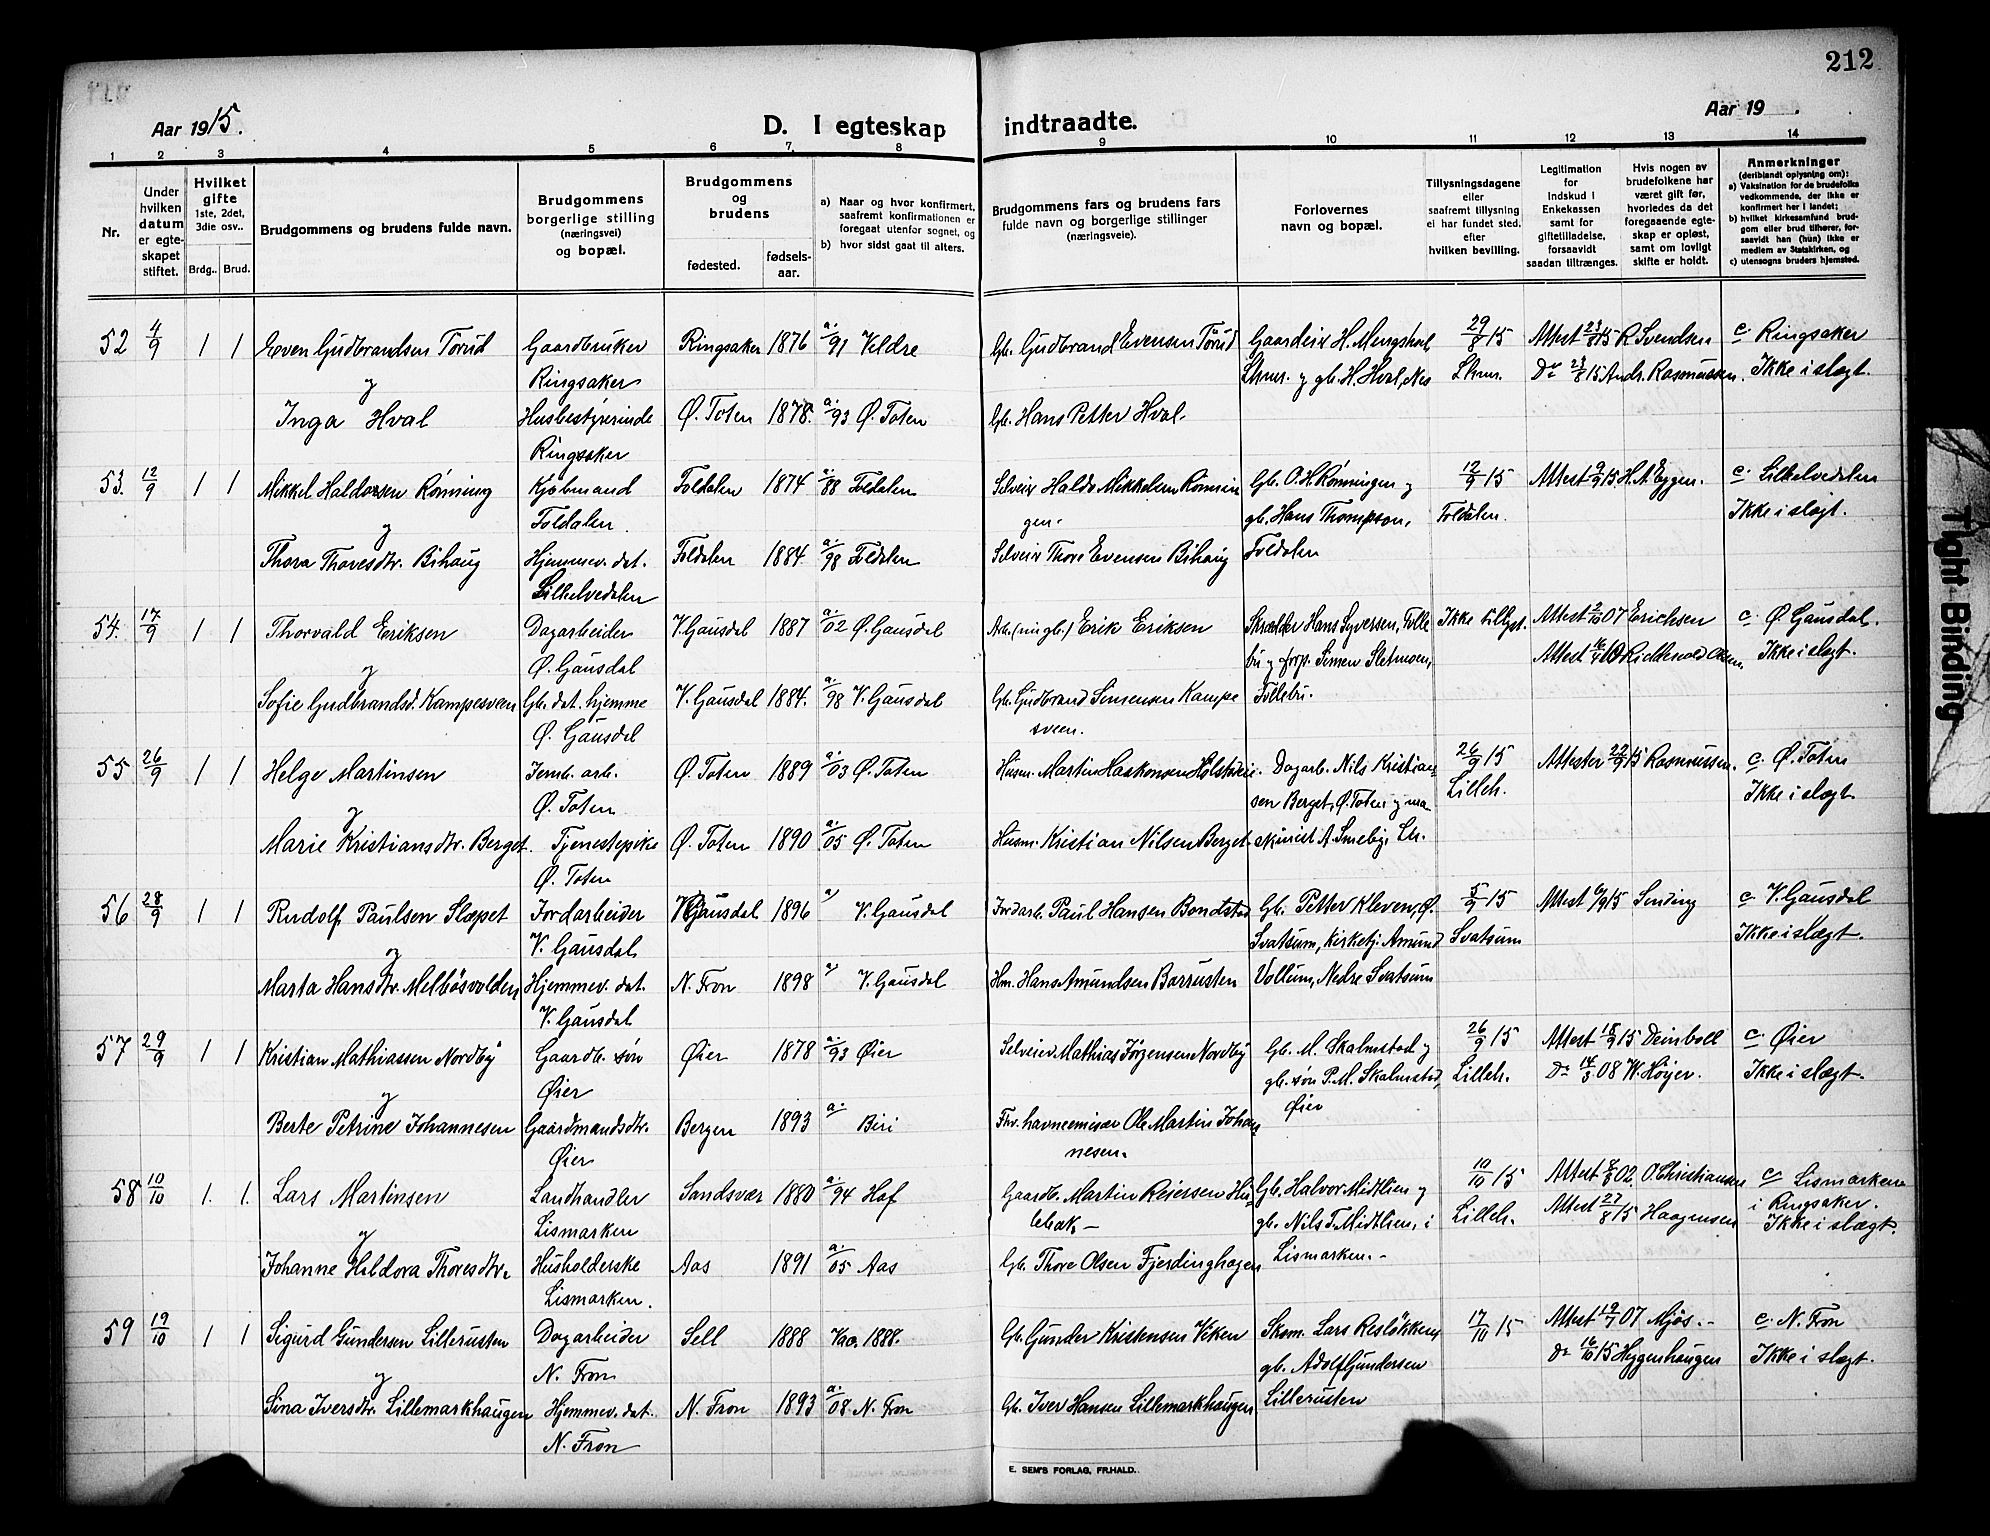 212
Aar 1915.
D. I egteskap
indtraadte.
Aar 19 .
1 2 3 4 5 6 7. 8 9 10 11 12 13 14
Nr.
Under hvilken datum er egteskapet stiftet.
Hvilket gifte 1ste, 2det, 3die osv..
Brdg.. Brud.
Brudgommens og brudens fulde navn.
Brudgommens borgerlige stilling (næringsvei) og bopæl.
Brudgommens og brudens
fødested. fødselsaar.
a) Naar og hvor konfirmert, saafremt konfirmationen er foregaat utenfor sognet, og
b) hvor sidst gaat til alters.
Brudgommens fars og brudens fars fulde navn og borgerlige stillinger (næringsveie).
Forlovernes navn og bopæl.
Tillysningsdagene eller saafremt tillysning ei har fundet sted. efter hvilken bevilling.
Legitimation for Indskud i Enkekassen samt for giftetilladelse, forsaavidt saadan tiltrænges.
Hvis nogen av brudefolkene har været gift før, hvorledes da det foregaaende egteskap er opløst, samt om lovligt skifte er holdt.
Anmerkninger (deriblandt oplysning om):
a) Vaksination for de brudefolks vedkommende, der ikke er konfirmert her i landet;
b) hvilket kirkesamfund brudgom eller brud tilhører, forsaavidt han (hun) ikke er medlem av Statskirken, og
c) utensogns bruders hjemsted.
52 4/9 1 1 Even Gudbrandsen Torud Gaardbruker Ringsaker 1876 a. /91 Veldre Gb. Gudbrand Evensen Torud Gaardeier H. Mengshoel 29/8 15 Attest 23/8 15 R Svendsen c Ringsaker
y Ringsaker Lhmr. y gb. H. Hval, Nes Lhmr. Do 23/8 15 Andr. Rasmussen. Ikke i slægt.
Inga Hval Husbestyrerinde Ø. Toten 1878. a. /93 Ø. Toten Gb. Hans Petter Hval.
Ringsaker
53. 12/9 1 1 Mikkel Haldorsen Rønning Kjøbmand Foldalen 1874 a. /88 Foldalen Selveier Haldo Mikkelsen Rønnin Gb. O. H. Rønningen y 12/9 15 Attest 9/9 15 H. A. Eggen. c. Lilleelvedalen
y Foldalen gen. gb. Hans Thompson, Foldalen. Ikke i slægt.
Thora Thoresdtr. Bihaug Hjemmev. dat. Foldalen 1884. a. /98 Foldalen Selveier Thore Evensen Bihaug Foldalen
Lilleelvedalen
54. 17/9 1 1 Thorvald Eriksen Dagarbeider V. Gausdal 1887 a. /02 Ø. Gausdal Arb. (nu gb.) Erik Eriksen Skrædder Hans Syversen, Folle Ikke tillyst. Attest 2/10 07 Erichsen c. Ø. Gausdal.
y Ø. Gausdal bu y forp. Simen Sletmoen, Attest Olsen, Ikke i slægt.
Sofie Gudbrandsd. Kampesveen Gb. dat. hjemme V. Gausdal 1884. a. /98 V. Gausdal Gb. Gudbrand Simensen Kampe Follebu.
Ø. Gausdal sveen.
55 26/9 1 1 Helge Martinsen Jernb. arb. Ø. Toten 1889 a. /03 Ø. Toten Husm. Martin Haakonsen Holstadeie. Dagarb. Nils Kristian- 26/9 15 Attester 22/9 15 Rasmussen. c. Ø. Toten
y Ø. Toten sen Berget, Ø. Toten y ma Lilleh. Ikke i slægt.
Marie Kristiansdtr. Berget. Tjenestepike Ø. Toten 1890 a. /05 Ø. Toten Husm. Kristian Nilsen Berget. skinist A. Smeby, Lh.
Ø. Toten
56 28/9 1 1 Rudolf Paulsen Slæpet Jordarbeider V. Gausdal 1896 a) V. Gausdal Jordarb. Paul Hansen Bondstad Gb. Petter Kleven, Ø. 5/9 15 Attest 6/9 15 Sinding c. V. Gausdal
y V. Gausdal Svatsum, kirketj. Amund Svatsum Ikke i slægt.
Marta Hansdtr. Melbösvolden Hjemmev. dat. N. Fron 1898 a) V. Gausdal Hm. Hans Amundsen Barrusten Vollum, Nedre Svatsum
V. Gausdal
57 29/9 1 1 Kristian Mathiassen Nordby Gaardb. søn Øier 1878 a. /93 Øier Selveier Mathias Jørgensen Nordby Gb. M. Skalmstad y 26/9 15 Attest 18/9 15 Deinboll c. Øier
y Øier gb. søn P. M. Skalmstad, Lilleh. Do 14/3 08 W. Höyer. Ikke i slægt.
Berte Petrine Johannesen Gaardmandsdtr. Bergen 1893 a. Biri Fhv. havneemisær Ole Martin Johan Øier
Øier nesen.
58 10/10 1. 1. Lars Martinsen Landhandler Sandsvær 1880 a. /94 Hof Gaardb. Martin Reiersen Hu Gb. Halvor Midtlien y 10/10 15 Attest 8/8 02. O. Christiansen c. Lismarken
y Lismarken lebak - gb. Nils F. Midtlien, i Lilleh. Attest 27/8 15 Haagensen i Ringsaker. Ikke i slægt.
Johanne Haldora Thoresdtr. Husholderske Aas 1891 a. /05 Aas Gb. Thore Olsen Fjerdinghagen Lismarken. -
Lismarken.
59 19/10 1 1 Sigurd Gundersen Lillerusten Dagarbeider Sell 1888 Vac. 1888. Gb. Gunder Kristensen Veken Skom. Lars Resløkken y 17/10 15 Attest 19/7 07 Mjøs. - c. N. Fron
y N. Fron gb. Adolf Gundersen Do 16/10 15 Heggenhaugen Ikke i slægt.
Sina Iversdtr. Lillemarkhaugen Hjemmev. dat. N. Fron 1893 a. /08. N. Fron Gb. Iver Hansen Lillemarkhaugen Lillerusten
N. Fron
E. SEM'S FORLAG, FR.HALD.
Tight Binding